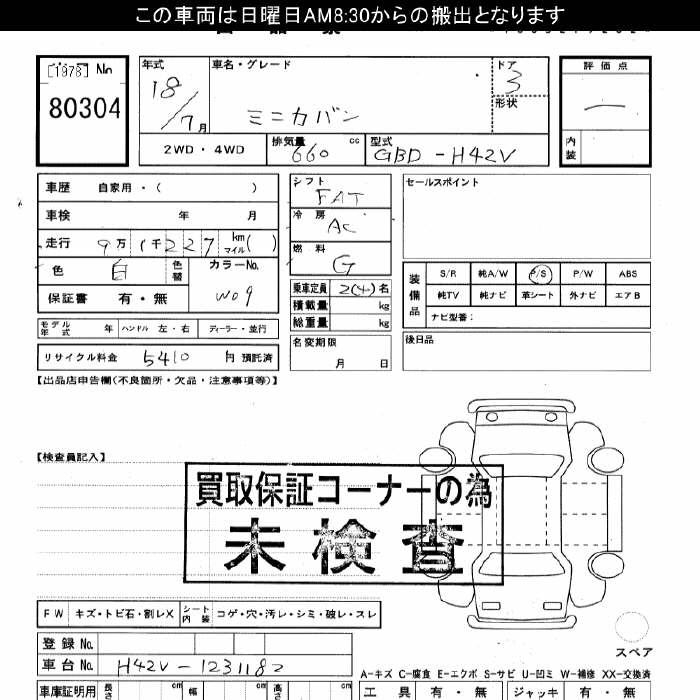 この車両は日曜日AM8:30からの搬出となります
[1978] No
80304
年式 車名・グレード ドア 評価点
18/7月 ミニカバン 3
形状
内装
2WD・4WD 排気量 660 cc 型式 GBD-H42V
車歴 自家用・( )
車検 年 月
走行 9万1千227 km マイル( )
色 白 色替 カラーNo. W09
保証書 有・無
シフト FAT
冷房 AC
燃料 G
乗車定員 2(4)名
積載量 kg
総重量 kg
名変期限
月 日
セールスポイント
装備品 S/R 純A/W P/S P/W ABS
純TV 純ナビ 革シート 外ナビ エアB
ナビ型番:
後日品
モデル年式 年 ハンドル 左・右 ディーラー・並行
リサイクル料金 5410 円 預託済
【出品店申告欄(不良箇所・欠品・注意事項等)】
【検査員記入】
買取保証コーナーの為
未検査
FW キズ・トビ石・割レX シート内装 コゲ・穴・汚レ・シミ・破レ・スレ
スペア
登録No.
車台No. H42V-1231182
A-キズ C-腐食 E-エクボ S-サビ U-凹ミ W-補修 XX-交換済
車庫証明用 長さ cm 幅 cm 高さ cm
工具 有・無 ジャッキ 有・無